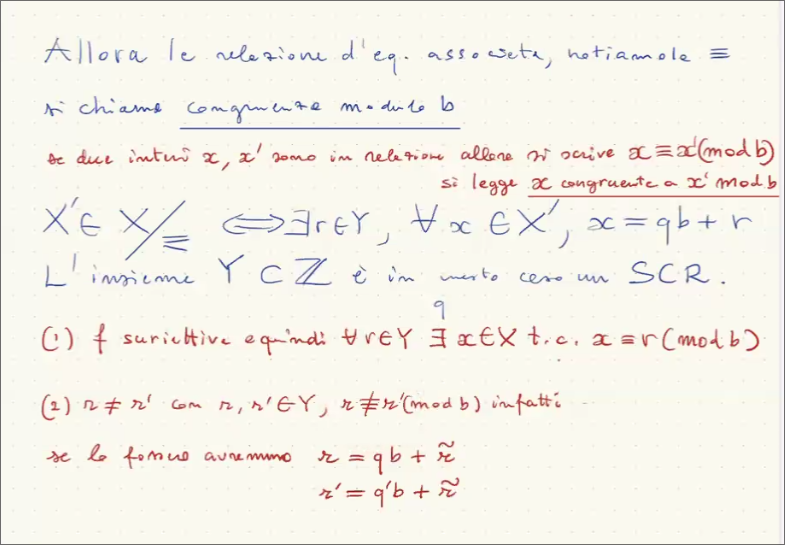 Allora la relazione d'eq. associata, notiamola ≡
si chiama congruenza modulo b
se due interi x, x' sono in relazione allora si scrive x ≡ x' (mod b)
si legge x congruente a x' mod b
X' ∈ X/≡ ⟺ ∃ r ∈ Y, ∀ x ∈ X', x = qb + r
L'insieme Y ⊂ ℤ è in questo caso un SCR.
(1) f suriettiva e quindi ∀ r ∈ Y ∃ x ∈ X t.c. x ≡ r (mod b)
(2) r ≠ r' con r, r' ∈ Y, r ≢ r' (mod b) infatti
se lo fossero avremmo r = qb + r̃
r' = q'b + r̃